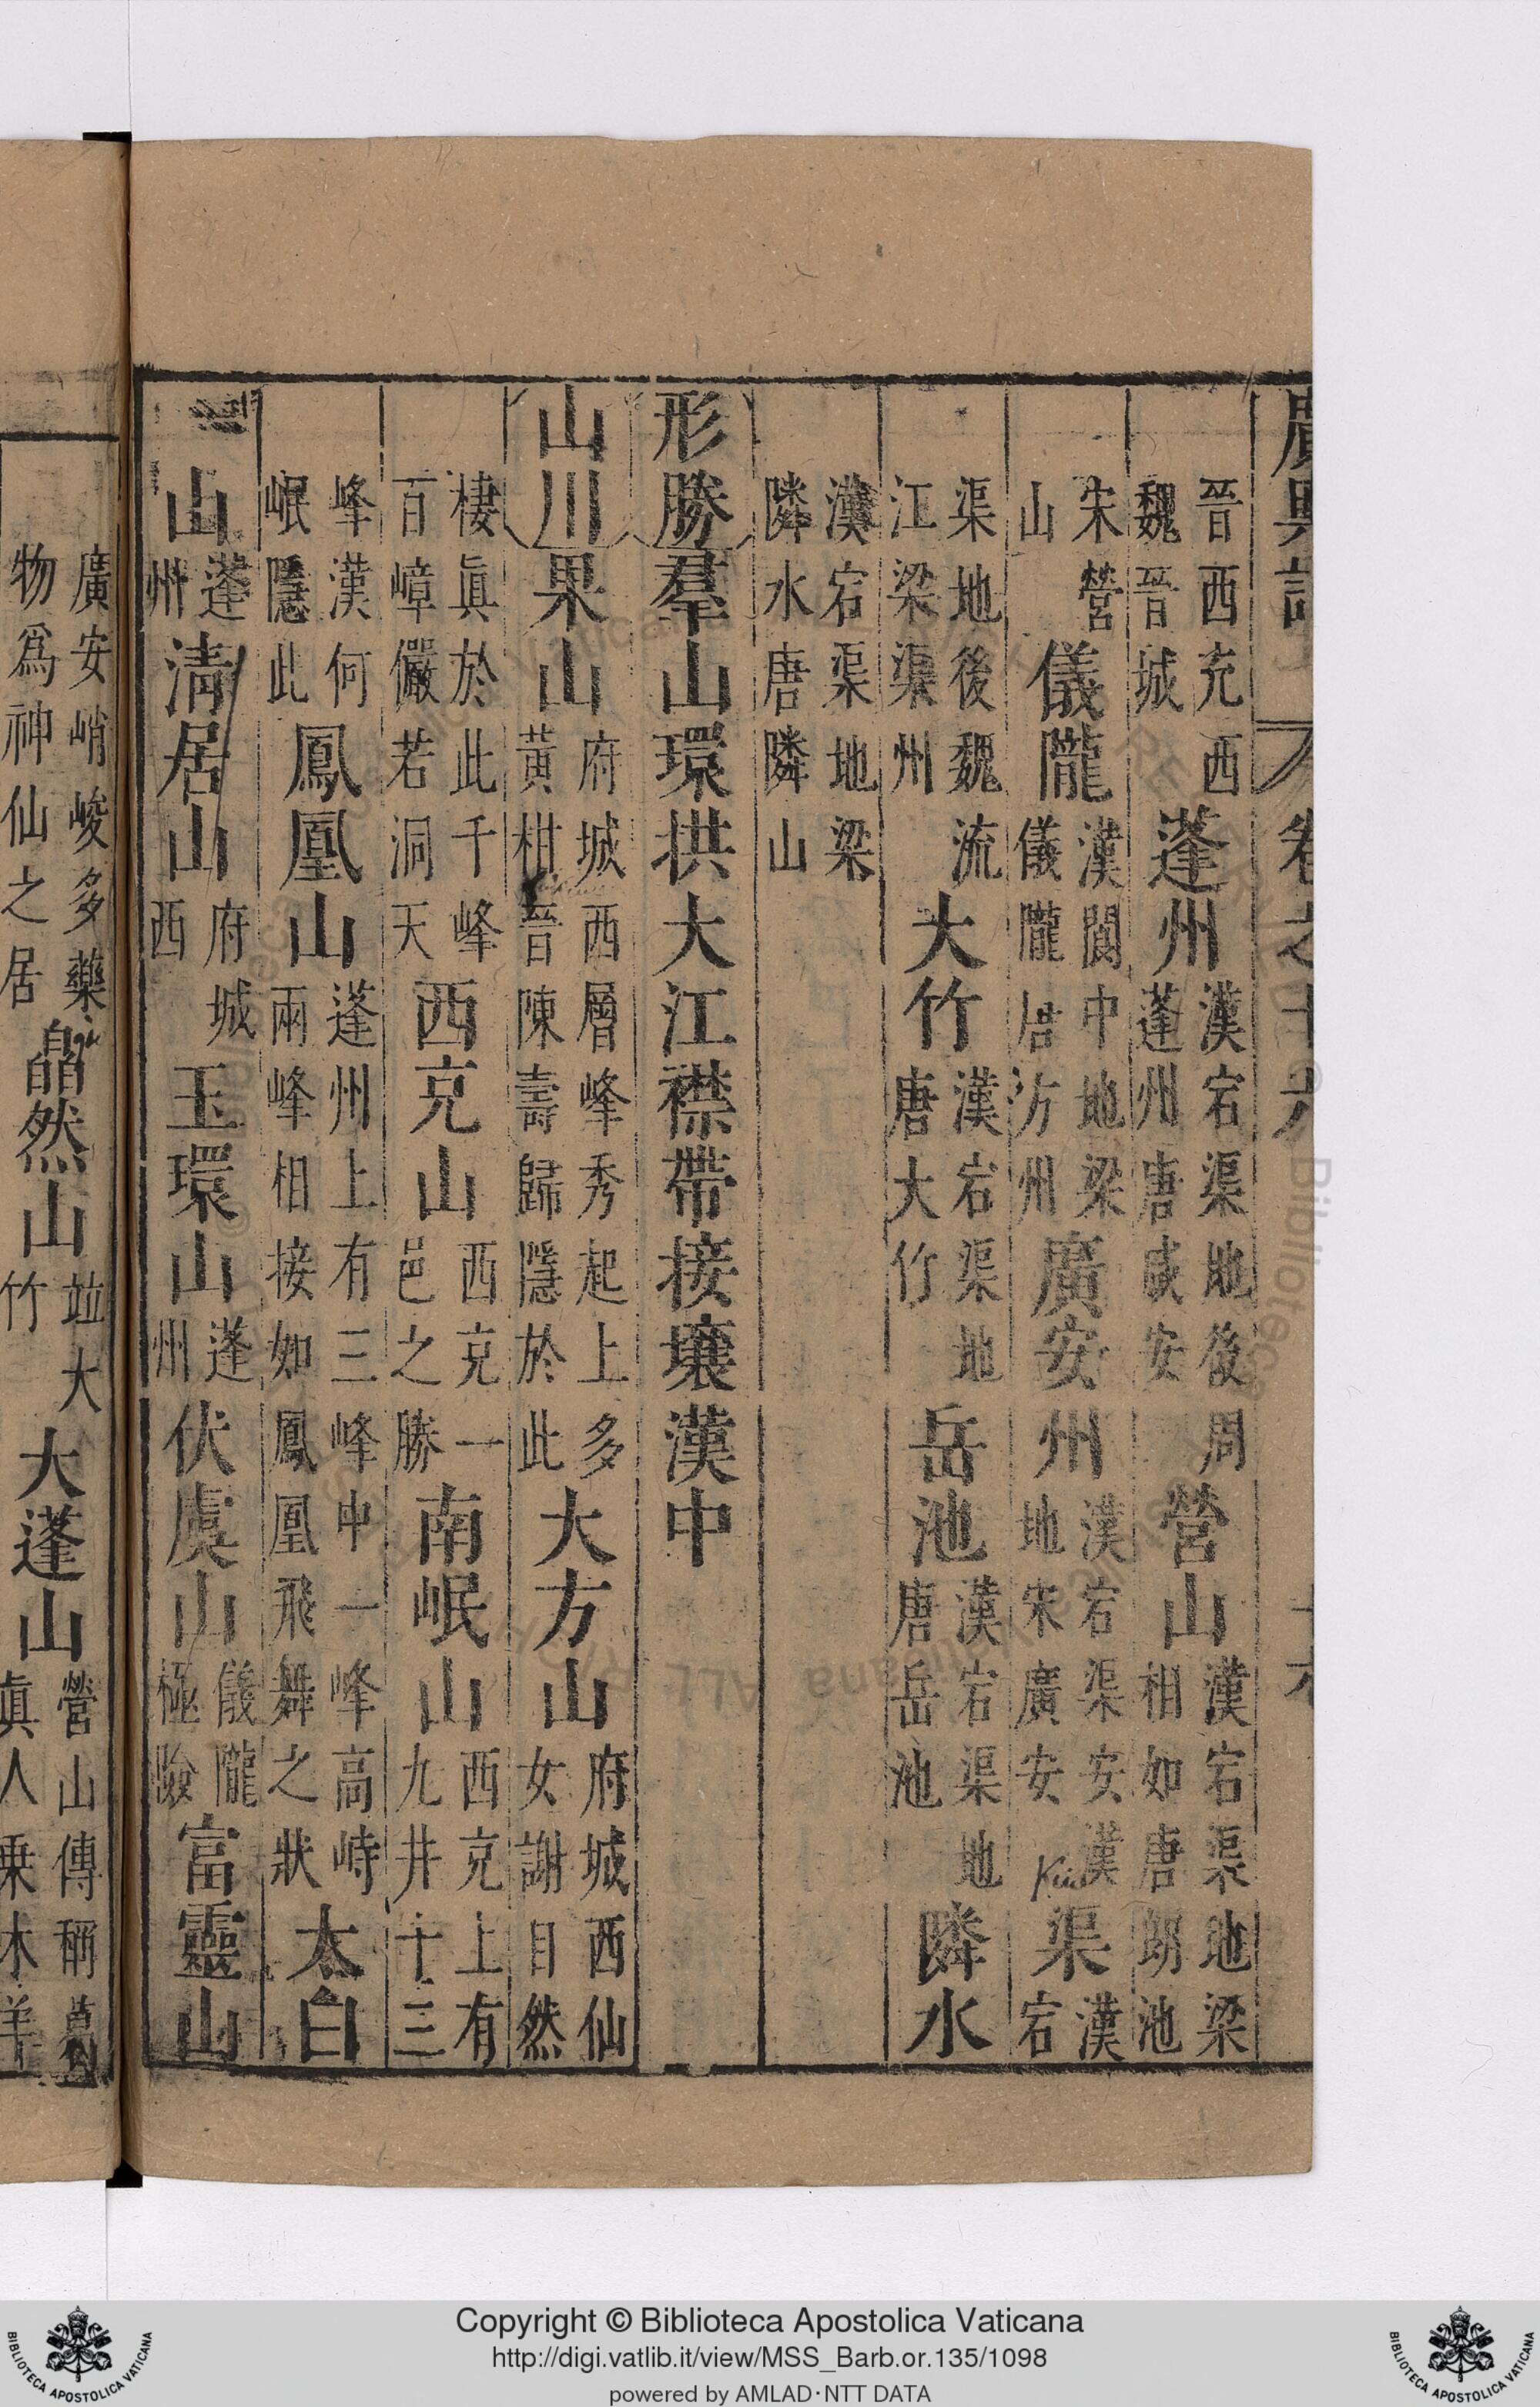 廣輿記 卷之十六
晉西充西
魏晉城
蓬州
漢宕渠地後周
蓬州唐咸安
營山
漢宕渠地梁
相如唐朗池
宋營
山
儀隴
漢閬中地梁
儀隴唐方州
廣安州
漢宕渠安漢
地宋廣安
渠
漢
宕
渠地後魏流
江梁渠州
大竹
漢宕渠地
唐大竹
岳池
漢宕渠地
唐岳池
隣水
漢宕渠地梁
隣水唐隣山
形勝羣山環拱大江襟帶接壤漢中
山川果山
府城西層峰秀起上多
黃柑晉陳壽歸隱於此
大方山
府城西仙
女謝自然
棲眞於此千峰
百嶂儼若洞天
西充山
西充一
邑之勝
南岷山
西充上有
九井十三
峰漢何
岷隱此
鳳凰山
蓬州上有三峰中一峰高峙
兩峰相接如鳳凰飛舞之狀
太白
山
蓬
州
清居山
府城
西
玉環山
蓬
州
伏虞山
儀隴
極峻
富靈山
廣安峭峻多藥
物爲神仙之居
皛然山
竝大
竹
大蓬山
營山傳稱葛
眞人乗木羊
Copyright © Biblioteca Apostolica Vaticana
http://digi.vatlib.it/view/MSS_Barb.or.135/1098
powered by AMLAD·NTT DATA
BIBLIOTECA APOSTOLICA VATICANA
BIBLIOTECA APOSTOLICA VATICANA